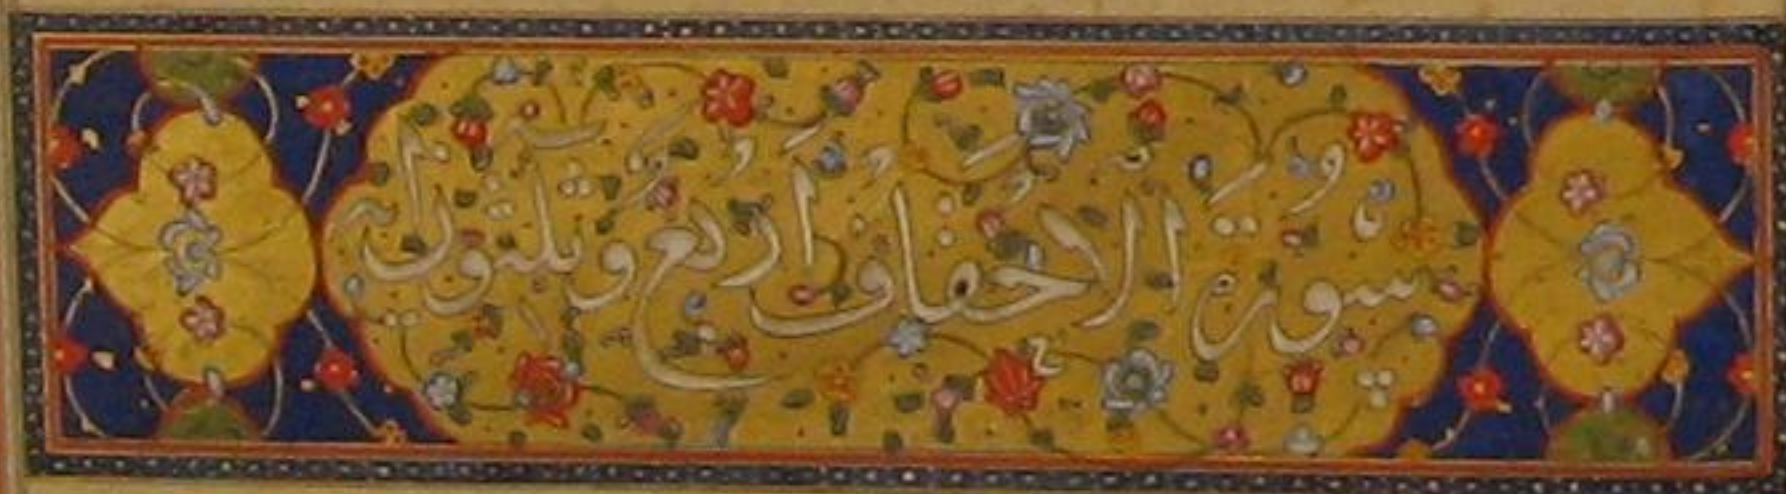 سُورَةُ الْاَحْقَافِ اَرْبَعٌ وَثَلٰثُونَ اٰيَة